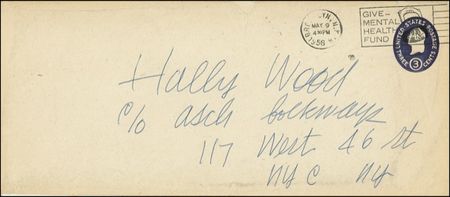 BROOKLYN, N.Y.
MAY 9
4 PM
1956
GIVE-
MENTAL
HEALTH
FUND
UNITED STATES POSTAGE
THREE 3 CENTS
Hally Wood
c/o asch
117 West 46 st
NYC NY